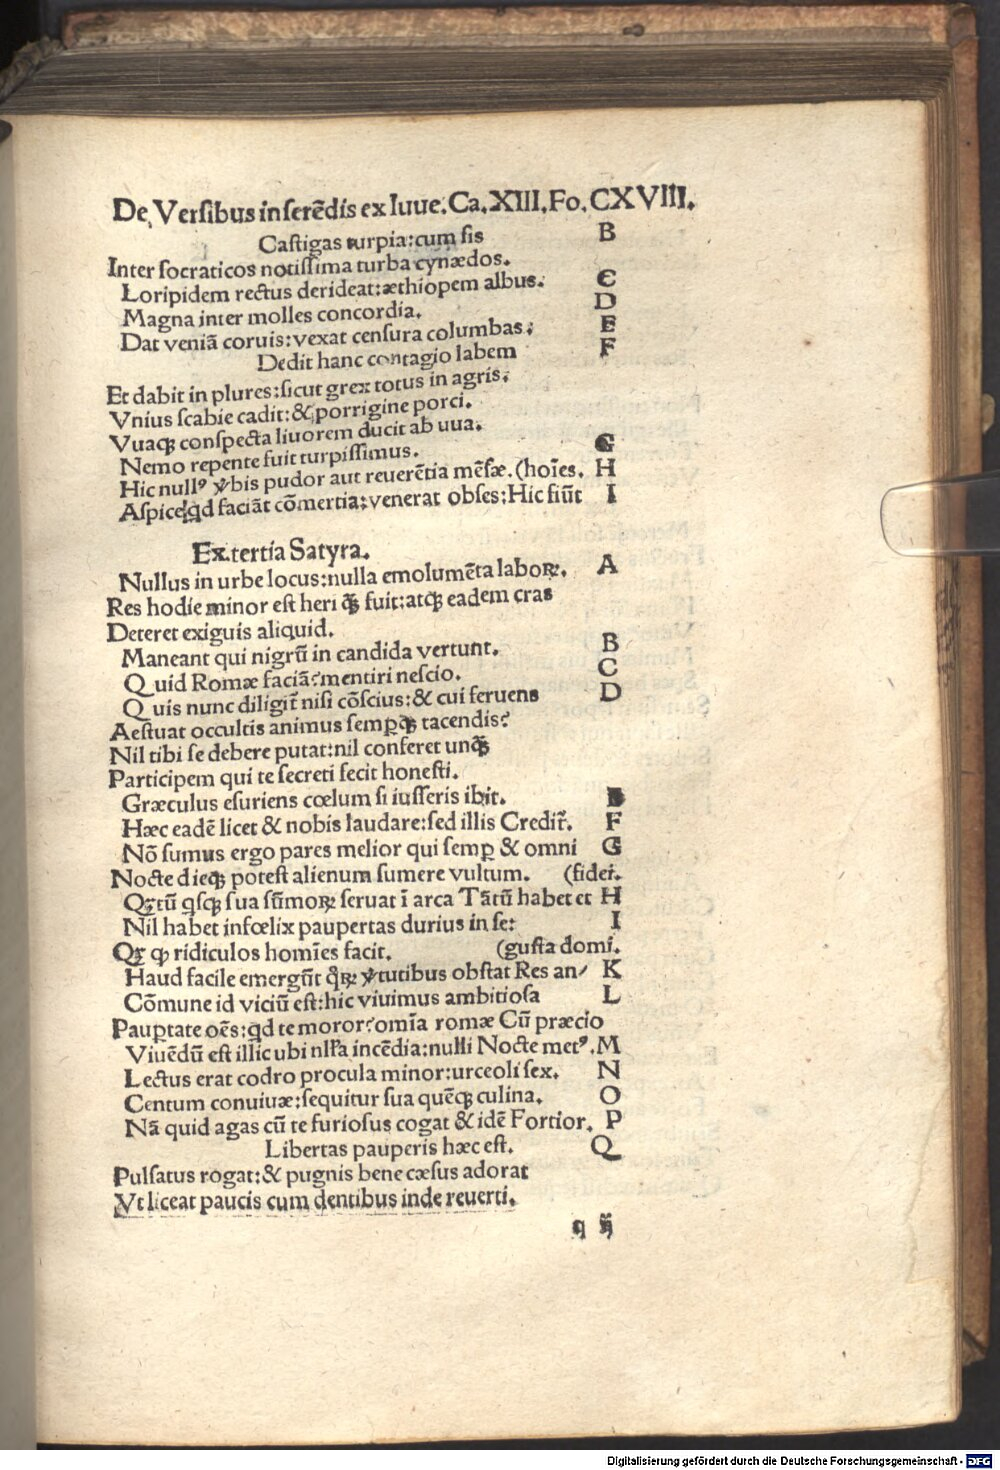 De Versibus inserēdis ex Iuue. Ca. XIII. Fo. CXVIII.
Castigas turpia: cum sis B
Inter socraticos notissima turba cynædos.
Loripidem rectus derideat: æthiopem albus. C
Magna inter molles concordia. D
Dat veniā coruis: vexat censura columbas. E
Dedit hanc contagio labem F
Et dabit in plures: sicut grex totus in agris.
Vnius scabie cadit: & porrigine porci.
Vuaqꝫ conspecta liuorem ducit ab uua.
Nemo repente fuit turpissimus. G
Hic nullꝰ v̄bis pudor aut reuerētia mēsæ. (hoīes. H
Aspice qd faciāt cōmertia: venerat obses: Hic fiūt I
Ex tertia Satyra.
Nullus in urbe locus: nulla emolumēta laboꝝ. A
Res hodie minor est heri q̄ꝫ fuit: atqꝫ eadem cras
Deteret exiguis aliquid.
Maneant qui nigrū in candida vertunt. B
Quid Romæ faciā? mentiri nescio. C
Quis nunc diligit̄ nisi cōscius: & cui feruens D
Aestuat occultis animus semꝑqꝫ tacendis?
Nil tibi se debere putat: nil conferet unq̄ꝫ
Participem qui te secreti fecit honesti.
Græculus esuriens cœlum si iusseris ibit. E
Hæc eadē licet & nobis laudare: sed illis Credit̄. F
Nō sumus ergo pares melior qui semꝑ & omni G
Nocte dieqꝫ potest alienum sumere vultum. (fidei.
Qꝫtū qsqꝫ sua nūmoꝝ seruat ī arca Tātū habet et H
Nil habet infœlix paupertas durius in se: I
Qꝫ ꝙ ridiculos homīes facit. (gusta domi.
Haud facile emergūt qꝝ v̄tutibus obstat Res an/ K
Cōmune id viciū est: hic viuimus ambitiosa L
Pauꝑtate oēs: qd te moror? omīa romæ Cū præcio
Viuēdū est illic ubi nlla incēdia: nulli Nocte metꝰ. M
Lectus erat codro procula minor: urceoli sex. N
Centum conuiuæ: sequitur sua quēqꝫ culina. O
Nā quid agas cū te furiosus cogat & idē Fortior. P
Libertas pauperis hæc est. Q
Pulsatus rogat: & pugnis bene cæsus adorat
Vt liceat paucis cum dentibus inde reuerti.
q ij
Digitalisierung gefördert durch die Deutsche Forschungsgemeinschaft - DFG